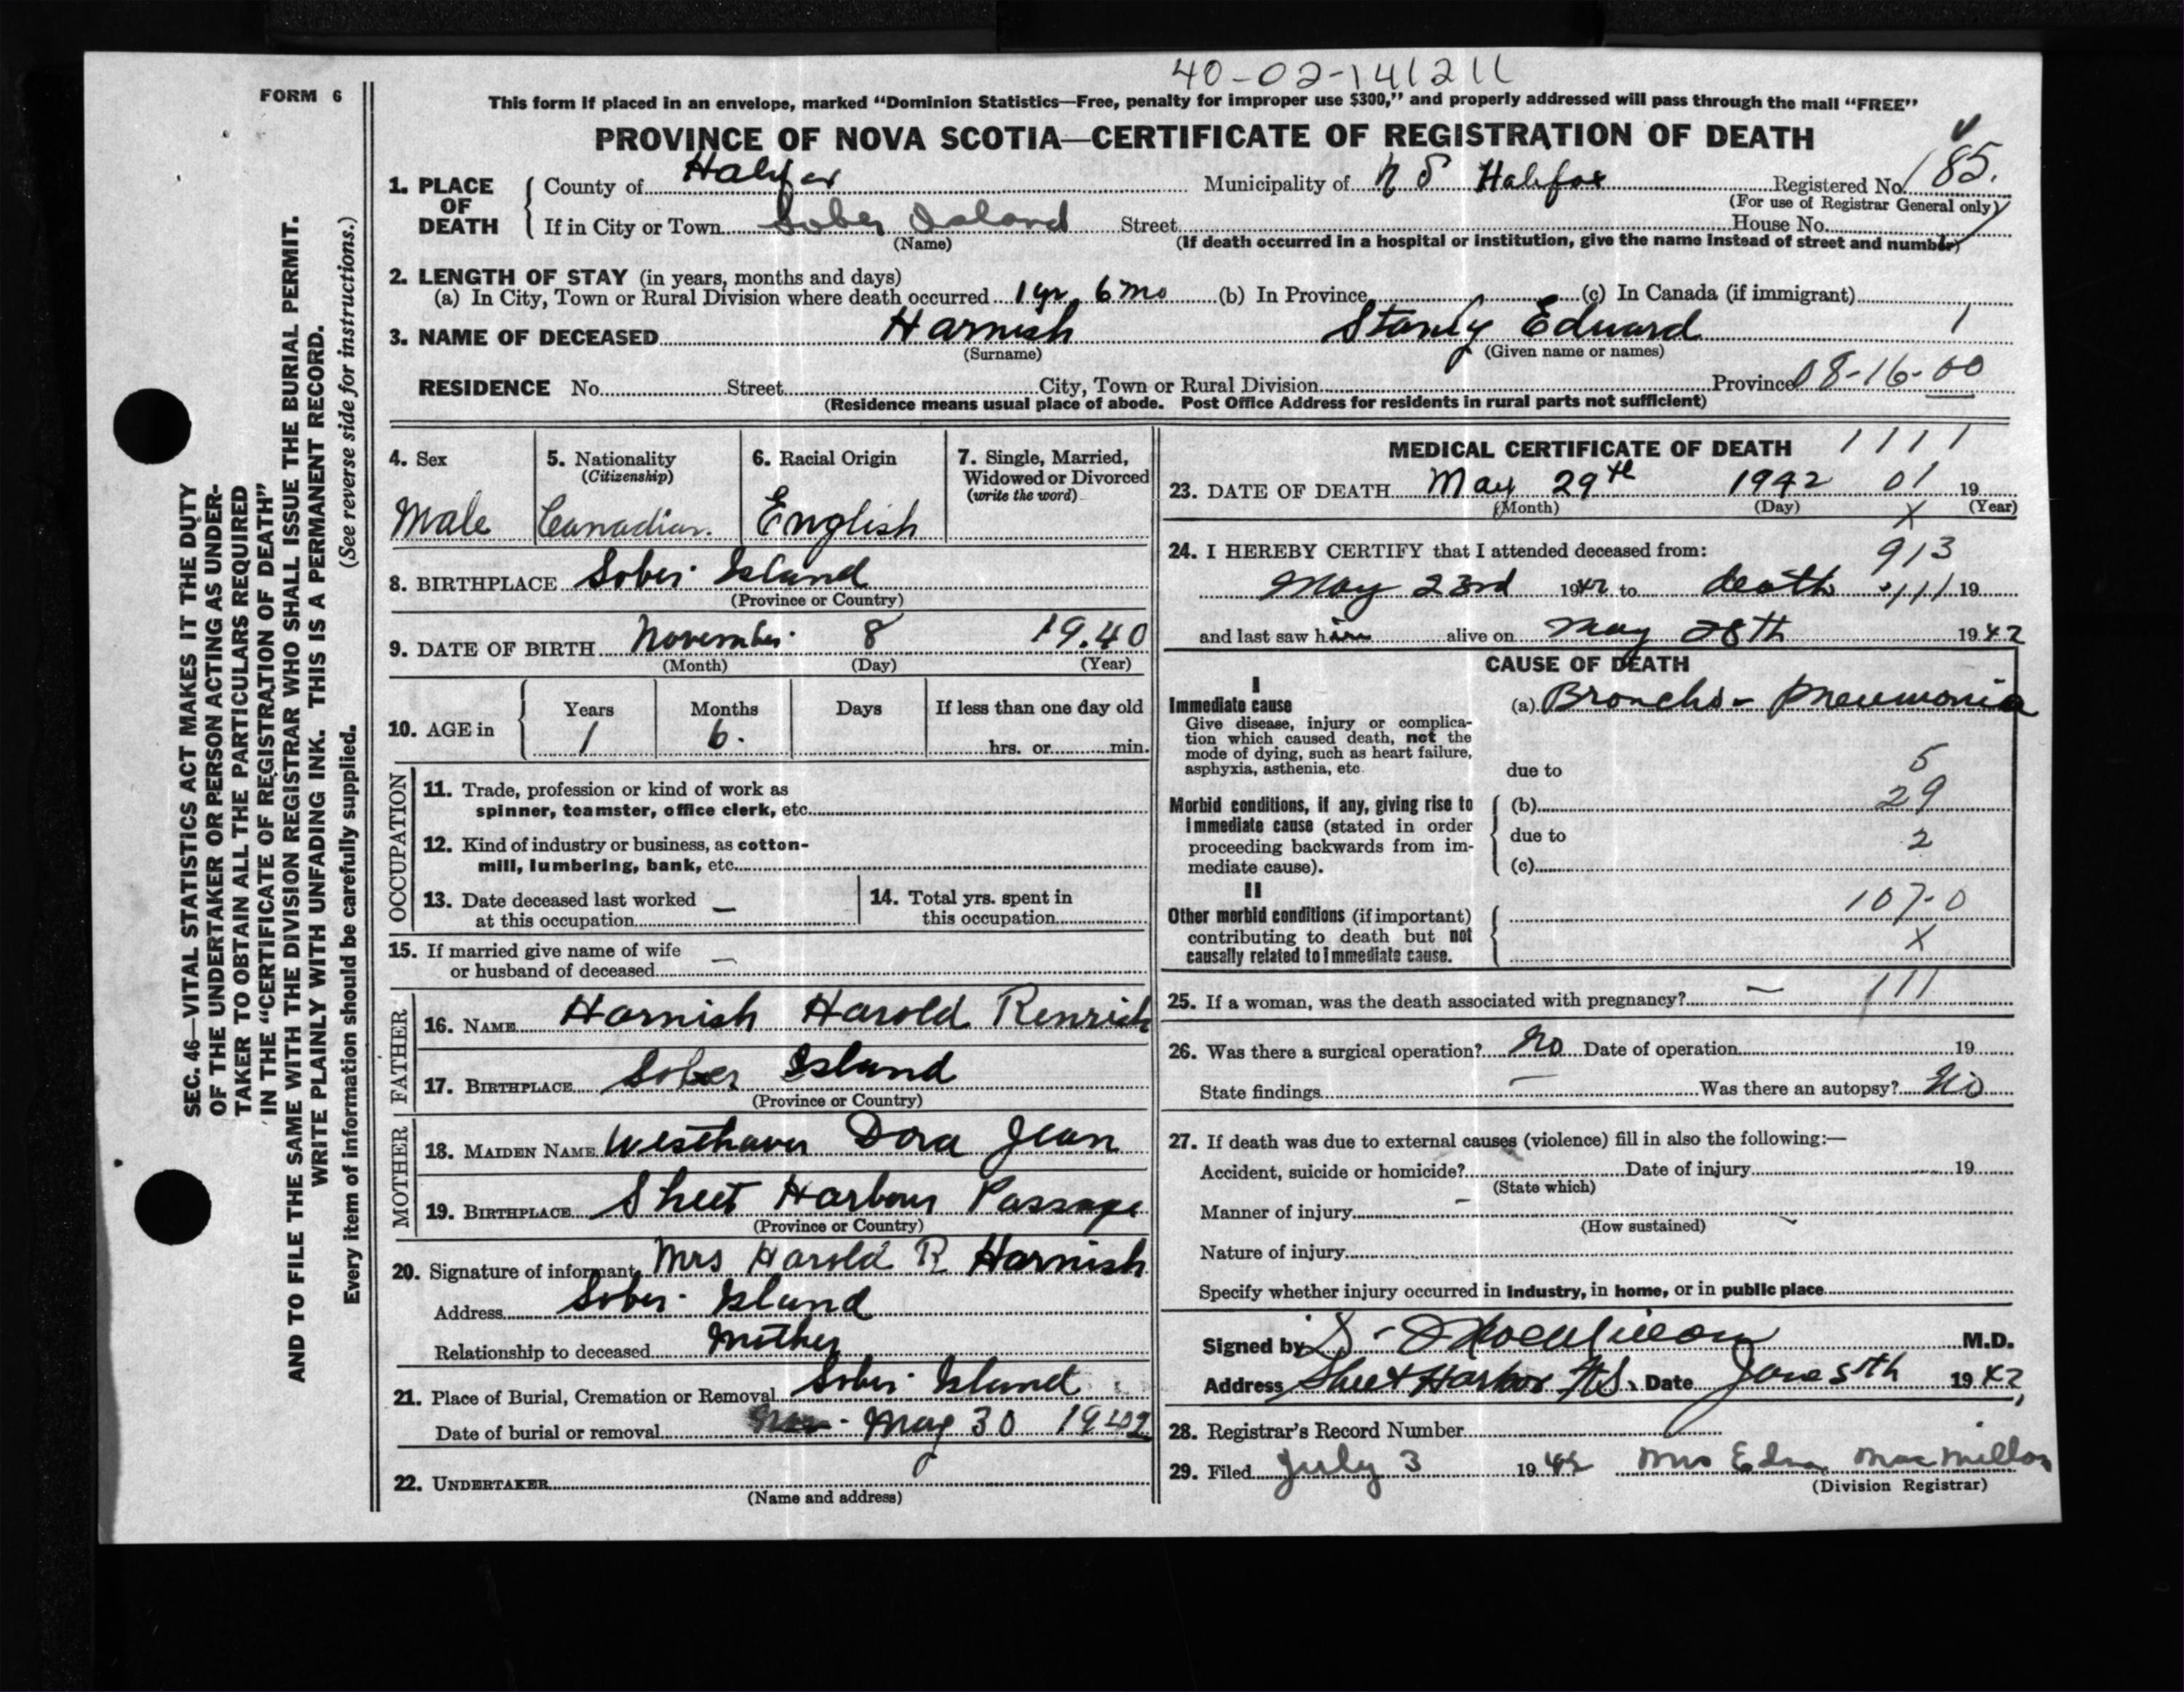 40-02-141211
FORM 6
This form if placed in an envelope, marked "Dominion Statistics—Free, penalty for improper use $300," and properly addressed will pass through the mail "FREE"
PROVINCE OF NOVA SCOTIA—CERTIFICATE OF REGISTRATION OF DEATH
1. PLACE OF DEATH
County of Halifax Municipality of N S Halifax Registered No. 185.
(For use of Registrar General only)
If in City or Town Sober Island Street House No.
(Name) (If death occurred in a hospital or institution, give the name instead of street and number)
2. LENGTH OF STAY (in years, months and days)
(a) In City, Town or Rural Division where death occurred 1 yr 6 mo (b) In Province (c) In Canada (if immigrant)
3. NAME OF DECEASED Harnish Stanly Edward 1
(Surname) (Given name or names)
RESIDENCE No. Street City, Town or Rural Division Province 08-16-00
(Residence means usual place of abode. Post Office Address for residents in rural parts not sufficient)
4. Sex
Male
5. Nationality
(Citizenship)
Canadian.
6. Racial Origin
English
7. Single, Married,
Widowed or Divorced
(write the word)
8. BIRTHPLACE Sober Island
(Province or Country)
9. DATE OF BIRTH November 8 1940
(Month) (Day) (Year)
10. AGE in
Years Months Days If less than one day old
1 6. hrs. or min.
OCCUPATION
11. Trade, profession or kind of work as
spinner, teamster, office clerk, etc.
12. Kind of industry or business, as cotton-
mill, lumbering, bank, etc.
13. Date deceased last worked
at this occupation —
14. Total yrs. spent in
this occupation
15. If married give name of wife
or husband of deceased —
FATHER
16. NAME Harnish Harold Renrich
17. BIRTHPLACE Sober Island
(Province or Country)
MOTHER
18. MAIDEN NAME Westhaver Dora Jean
19. BIRTHPLACE Sheet Harbour Passage
(Province or Country)
20. Signature of informant Mrs Harold R Harnish
Address Sober Island
Relationship to deceased Mother
21. Place of Burial, Cremation or Removal Sober Island
Date of burial or removal May 30 1942
22. UNDERTAKER
(Name and address)
MEDICAL CERTIFICATE OF DEATH 1111
23. DATE OF DEATH May 29th 1942 01 19
(Month) (Day) X (Year)
24. I HEREBY CERTIFY that I attended deceased from: 913
May 23rd 1942 to death 111 19
and last saw him alive on May 28th 1942
CAUSE OF DEATH
I
Immediate cause
Give disease, injury or complica-
tion which caused death, not the
mode of dying, such as heart failure,
asphyxia, asthenia, etc.
(a) Broncho-pneumonia
due to 5
Morbid conditions, if any, giving rise to
immediate cause (stated in order
proceeding backwards from im-
mediate cause).
(b) 29
due to 2
(c)
II
Other morbid conditions (if important)
contributing to death but not
causally related to immediate cause.
107-0
X
25. If a woman, was the death associated with pregnancy? — 111
26. Was there a surgical operation? No Date of operation 19
State findings — Was there an autopsy? No
27. If death was due to external causes (violence) fill in also the following:—
Accident, suicide or homicide? Date of injury 19
(State which)
Manner of injury
(How sustained)
Nature of injury
Specify whether injury occurred in industry, in home, or in public place
Signed by M.D.
Address Sheet Harbor N.S. Date June 5th 1942
28. Registrar's Record Number
29. Filed July 3 1942 Mrs Edna MacMillan
(Division Registrar)
SEC. 46—VITAL STATISTICS ACT MAKES IT THE DUTY
OF THE UNDERTAKER OR PERSON ACTING AS UNDER-
TAKER TO OBTAIN ALL THE PARTICULARS REQUIRED
IN THE "CERTIFICATE OF REGISTRATION OF DEATH"
AND TO FILE THE SAME WITH THE DIVISION REGISTRAR WHO SHALL ISSUE THE BURIAL PERMIT.
WRITE PLAINLY WITH UNFADING INK. THIS IS A PERMANENT RECORD.
Every item of information should be carefully supplied. (See reverse side for instructions.)